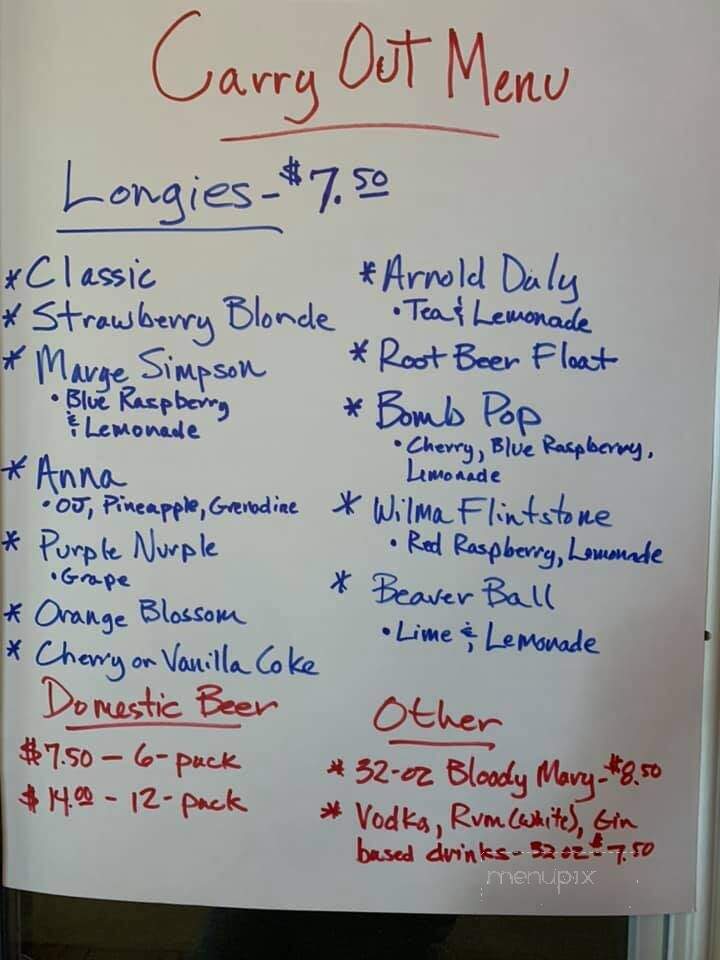 Carry Out Menu
Longies - $7.50
* Classic
* Strawberry Blonde
* Marge Simpson
• Blue Raspberry
& Lemonade
* Anna
• OJ, Pineapple, Grenadine
* Purple Nurple
• Grape
* Orange Blossom
* Cherry or Vanilla Coke
* Arnold Daly
• Tea & Lemonade
* Root Beer Float
* Bomb Pop
• Cherry, Blue Raspberry,
Lemonade
* Wilma Flintstone
• Red Raspberry, Lemonade
* Beaver Ball
• Lime & Lemonade
Domestic Beer
$7.50 - 6-pack
$14.00 - 12-pack
Other
* 32-oz Bloody Mary - $8.50
* Vodka, Rum (white), Gin
based drinks - 32 oz - $7.50
menupix